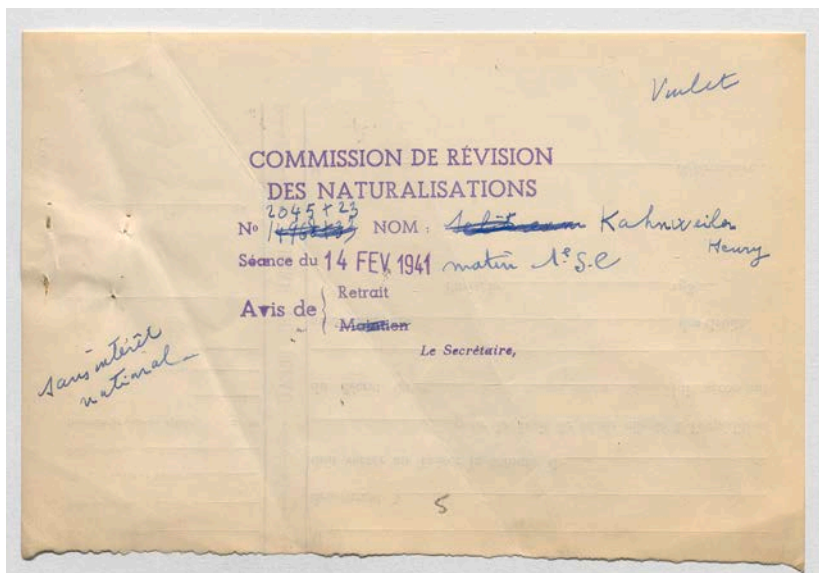 COMMISSION DE RÉVISION
DES NATURALISATIONS
2045 + 23
No NOM : Kahnweiler
Henry
Séance du 14 FEV. 1941 matin 1e S.C
Avis de { Retrait
Maintien
Le Secrétaire,
sans intérêt
national
5